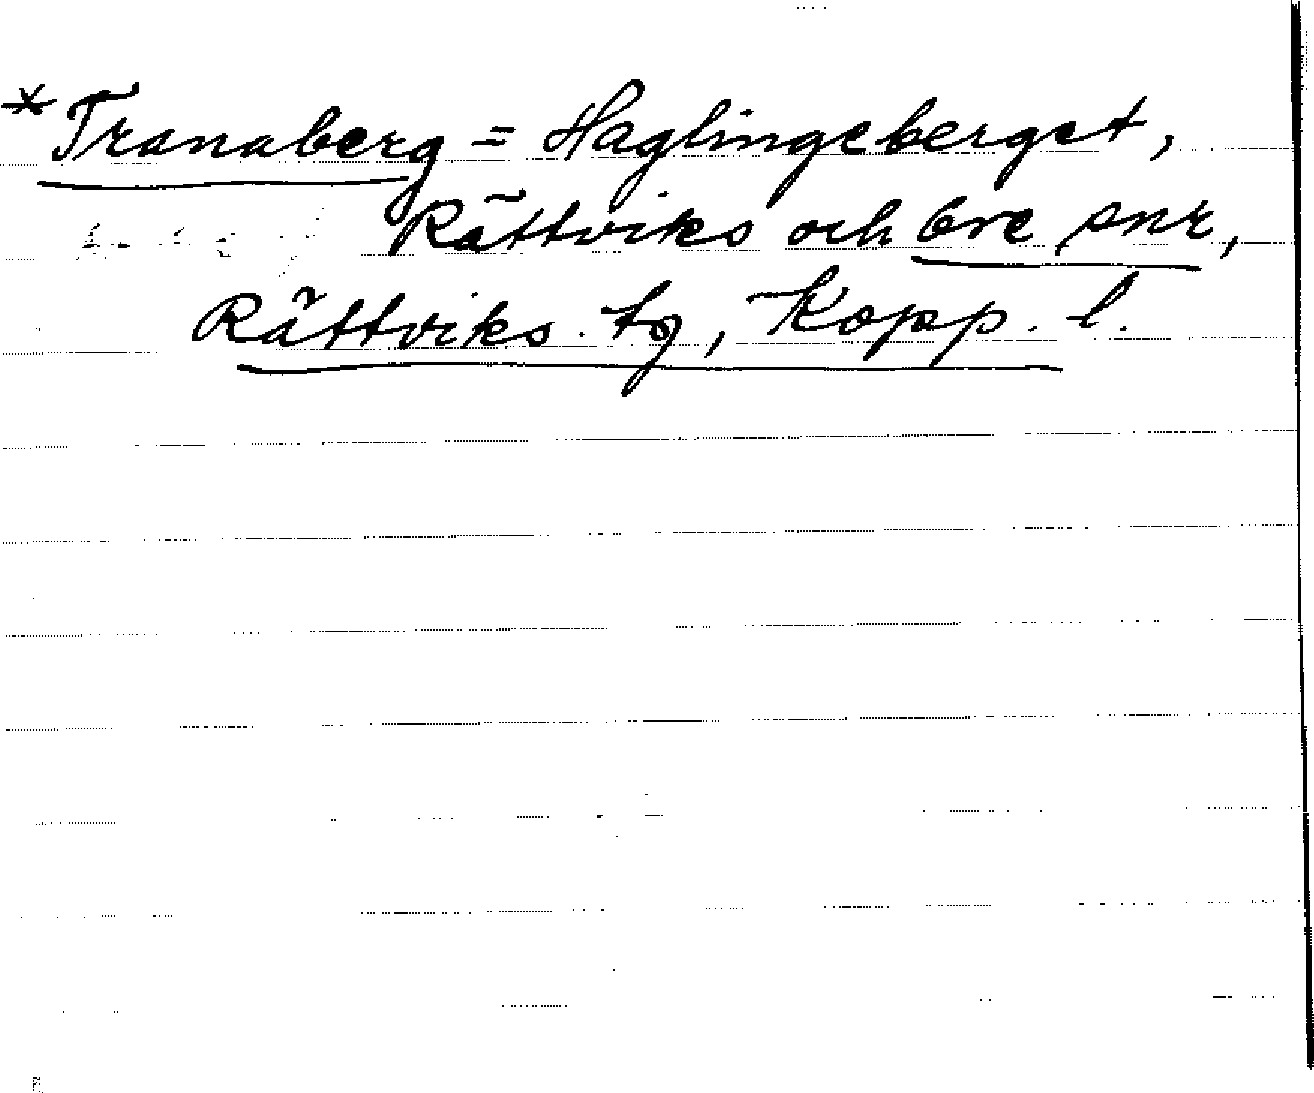 *Tranaberg = Haglingeberget,
Rättviks och Ore snr,
Rättviks tg, Kopp. l.